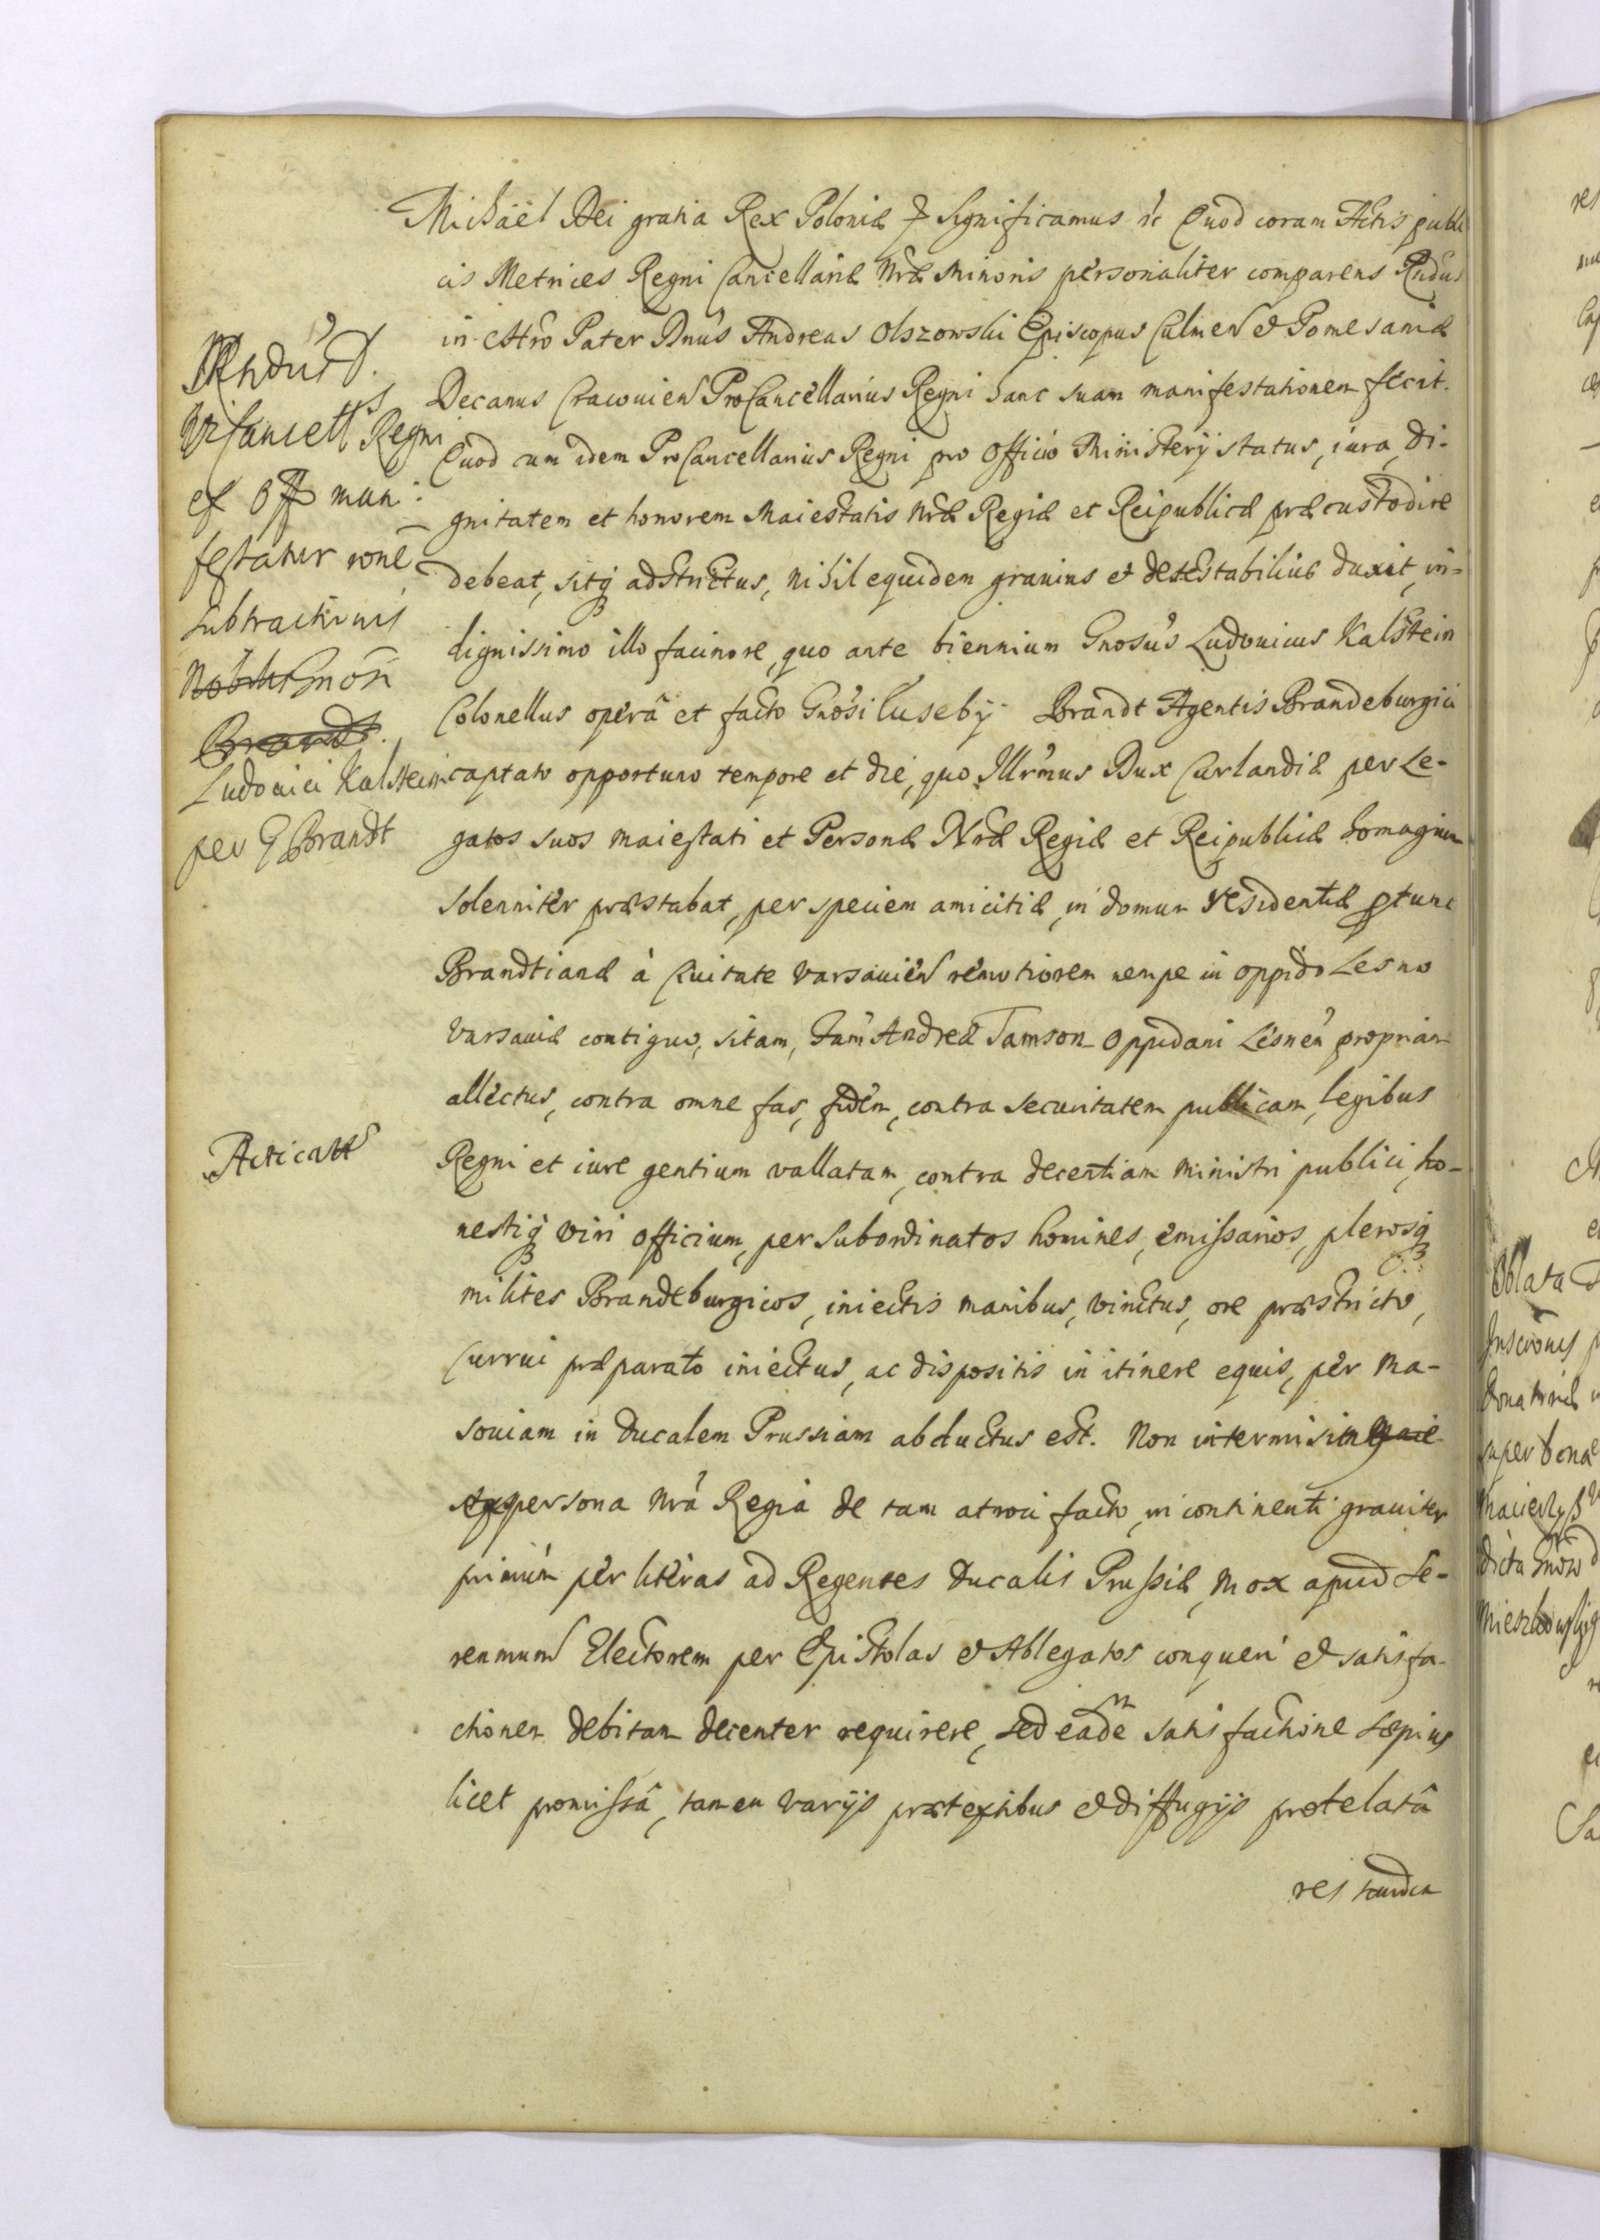 Michäel Dei gratia Rex Poloniæ & Significamus &c Quod coram Actis publi
cis Metrices Regni Cancellariæ Nræ Minoris personaliter comparens Rndus
in Chro Pater Dnus Andreas Olszowski Episcopus Culmen et Pomesaniæ
Decanus Cracouien ProCancellarius Regni hanc suam manifestationem fecit.
Quod cum idem ProCancellarius Regni pro Officio Ministerij status, iura, di-
gnitatem et honorem Maiestatis Nræ Regiæ et Reipublicæ præcustodire
debeat, sitq adstrictus, nihil equidem grauius et detestabilius duxit, in-
dignissimo illo facinore, quo ante biennium Gnosus Ludouicus Kalstein
Colonellus operâ et facto Gnosi Eusebij Brandt Agentis Brandeburgici
captato opportuno tempore et die, quo Illrmus Dux Curlandiæ per Le-
gatos suos Maiestati et Personæ Nræ Regiæ et Reipublicæ homagium
solenniter præstabat, per speciem amicitiæ, in domum residentiæ ptunc
Brandtianæ à Ciuitate Varsauien remotiorem nempe in oppido Lesno
Varsauiæ contiguo, sitam, Fam Andreæ Tamson Oppidani Lesnen propriam
allectus, contra omne fas, fidem, contra securitatem publicam, legibus
Regni et iure gentium vallatam, contra decentiam ministri publici, ho-
nestiq viri officium, per subordinatos homines, emissarios, plerosq
milites Brandeburgicos, iniectis manibus, vinctus, ore præstricto,
Currui præparato iniectus, ac dispositis in itinere equis, per Ma-
souiam in Ducalem Prussiam abductus est. Non intermisim
persona Nrâ Regiâ de tam atroci facto, in continenti grauiter
primum per literas ad Regentes Ducalis Prussiæ, mox apud Se-
renmum Electorem per Epistolas et Ablegatos conqueri et satisfa-
ctionem debitam decenter requirere, sed eadem satisfactione sæpius
licet promissâ, tamen varijs prætextibus et diffugijs protelatâ
res tandem
Rndus D.
ViCancells Regni
ex Off mani
festatur rone
subtractionis
Nobilis Gnosi
Brandt.
Ludouici Kalstein
per G Brandt
Acticatt
Oblata
Inscrones
donatoriæ
super bona
dicta Gnoso